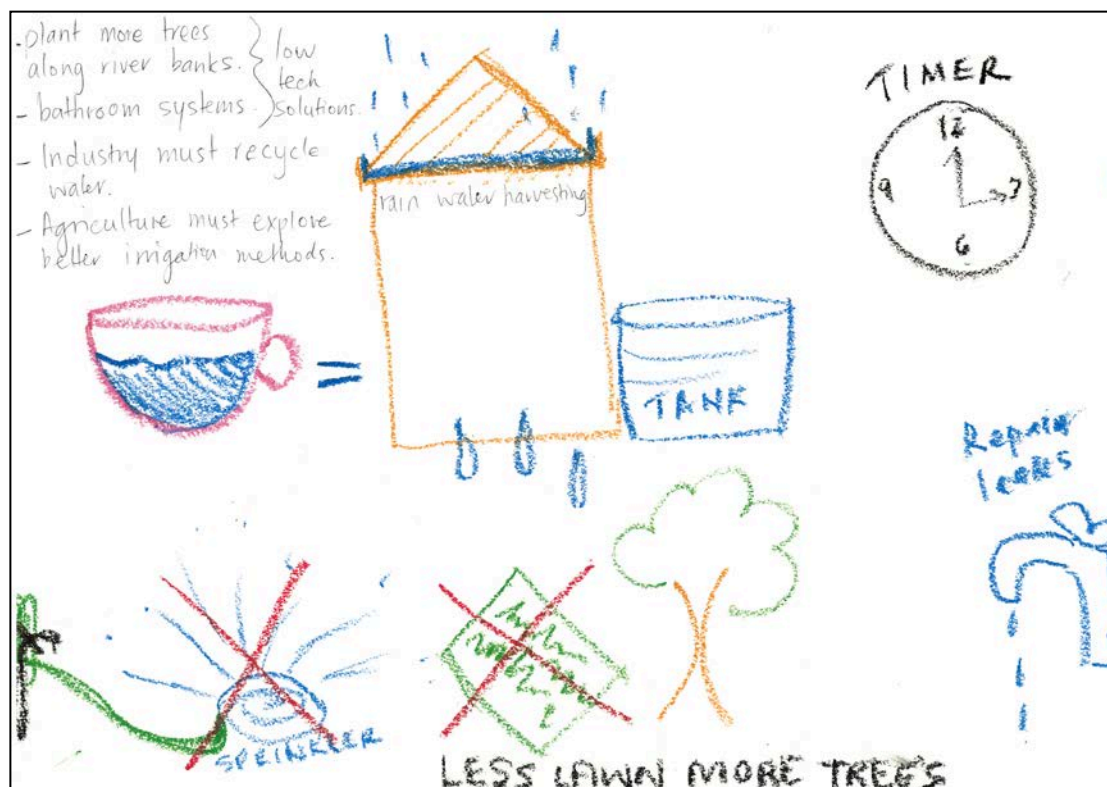 - plant more trees
along river banks.
- bathroom systems.
low
tech
solutions.
- Industry must recycle
water.
- Agriculture must explore
better irrigation methods.
rain water harvesting
TIMER
12
9
3
6
TANK
Repair
leaks
SPRINKLER
LESS LAWN MORE TREES